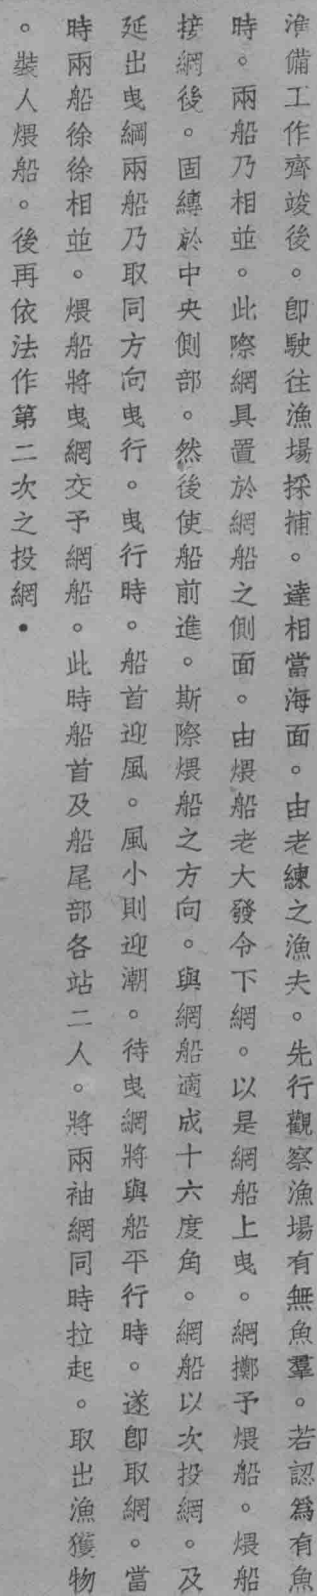 準備工作齊竣後。卽駛往漁場採捕。達相當海面。由老練之漁夫。先行觀察漁場有無魚羣。若認爲有魚
時。兩船乃相並。此際網具置於網船之側面。由煨船老大發令下網。以是網船上曳。網擲予煨船。煨船
接網後。固縛於中央側部。然後使船前進。斯際煨船之方向。與網船適成十六度角。網船以次投網。及
延出曳綱兩船乃取同方向曳行。曳行時。船首迎風。風小則迎潮。待曳網將與船平行時。遂卽取網。當
時兩船徐徐相並。煨船將曳網交予網船。此時船首及船尾部各站二人。將兩袖網同時拉起。取出漁獲物
。裝人煨船。後再依法作第二次之投網．